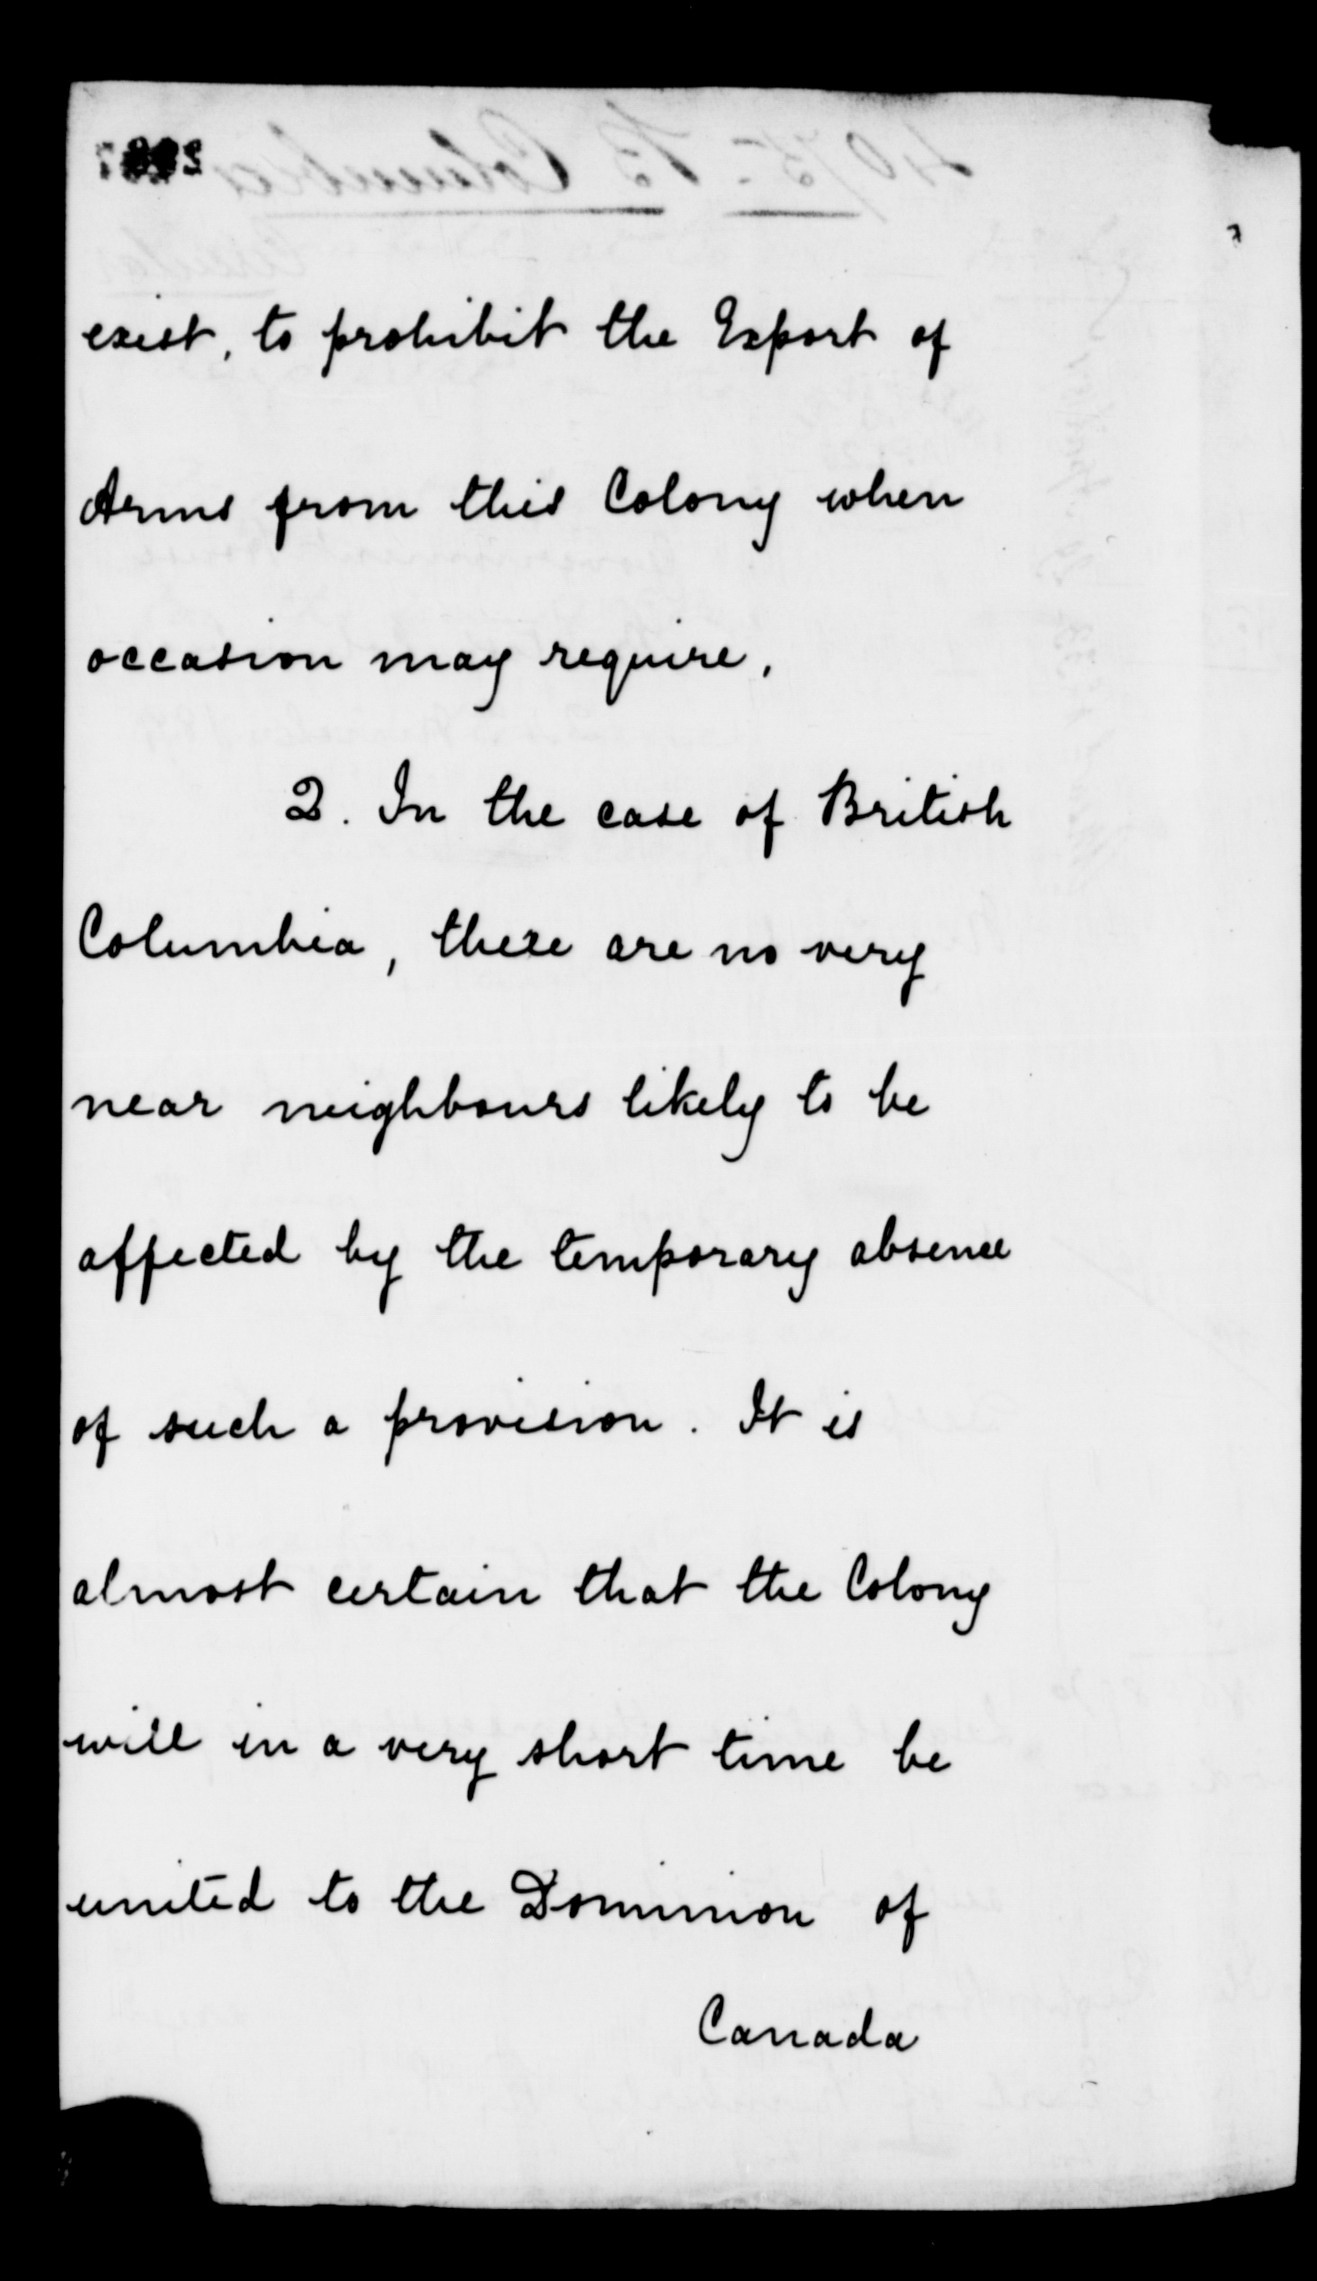 exist, to prohibit the Export of
Arms from this Colony when
occasion may require.
2. In the case of British
Columbia, there are no very
near neighbours likely to be
affected by the temporary absence
of such a provision. It is
almost certain that the Colony
will in a very short time be
united to the Dominion of
Canada